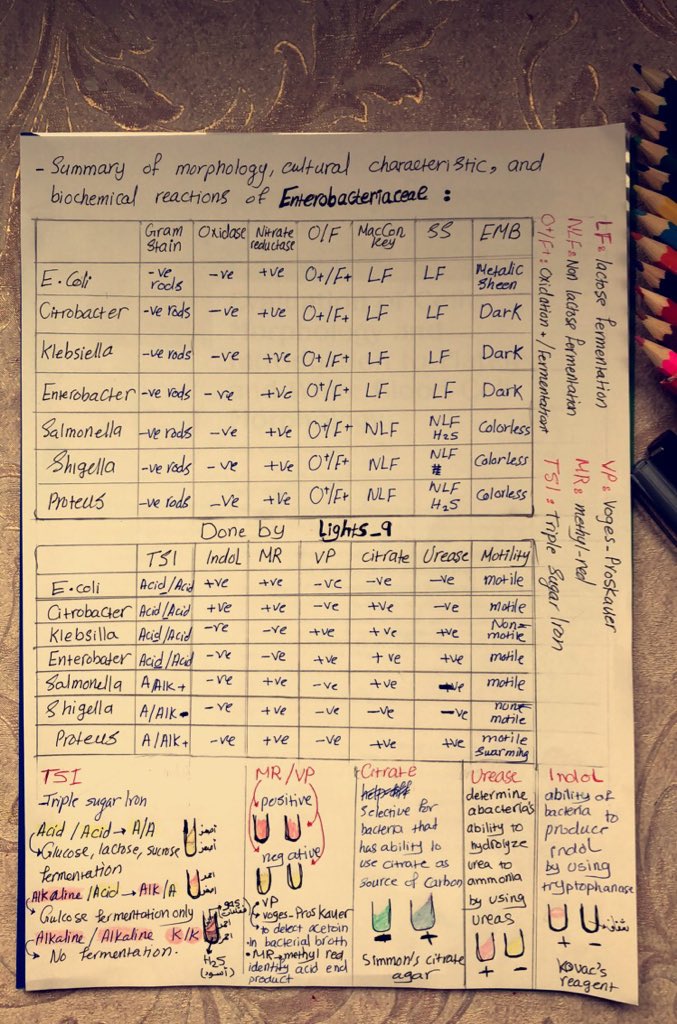 - Summary of morphology, cultural characteristic, and
biochemical reactions of Enterobacteriaceae :
Gram Stain Oxidase Nitrate reductase O/F MacConkey SS EMB
E.Coli -ve rods -ve +ve O+/F+ LF LF Metalic Sheen
Citrobacter -ve rods -ve +ve O+/F+ LF LF Dark
Klebsiella -ve rods -ve +ve O+/F+ LF LF Dark
Enterobacter -ve rods -ve +ve O+/F+ LF LF Dark
Salmonella -ve rods -ve +ve O+/F+ NLF NLF H2S Colorless
Shigella -ve rods -ve +ve O+/F+ NLF NLF Colorless
Proteus -ve rods -ve +ve O+/F+ NLF NLF H2S Colorless
LF: lactose fermentation
NLF: Non lactose fermentation
O+/F+: Oxidation + / fermentation+
VP: Voges-Proskauer
MR: methyl-red
TSI: Triple Sugar Iron
Done by Lights_9
TSI Indol MR VP citrate Urease Motility
E.coli Acid/Acid +ve +ve -ve -ve -ve motile
Citrobacter Acid/Acid +ve +ve -ve +ve -ve motile
Klebsilla Acid/Acid -ve -ve +ve +ve +ve Non-motile
Enterobater Acid/Acid -ve -ve +ve +ve +ve motile
Salmonella A/Alk+ -ve +ve -ve +ve -ve motile
Shigella A/Alk- -ve +ve -ve -ve -ve none motile
Proteus A/Alk+ -ve +ve -ve +ve +ve motile swarming
TSI
-Triple sugar Iron
Acid / Acid → A/A
Glucose, lactose, sucrose
fermentation
Alkaline/Acid → Alk/A
Gulcose fermentation only
Alkaline / Alkaline K/K
No fermentation.
أصفر
أصفر
أحمر
أصفر
أحمر
أحمر
H2S
(أسود)
MR/VP
positive
negative
• VP
voges-Proskauer
to detect acetoin
in bacterial broth
• MR → methyl red
identify acid end
product
Citrate
Selective for
bacteria that
has ability to
use citrate as
source of Carbon
- +
Simmon's citrate
agar
Urease
determine
abacteria's
ability to
hydrolyze
urea to
ammonia
by using
ureas
+ -
Indol
ability of
bacteria to
produce
indol
by using
tryptophanase
شفاف
+ -
Kovac's
reagent